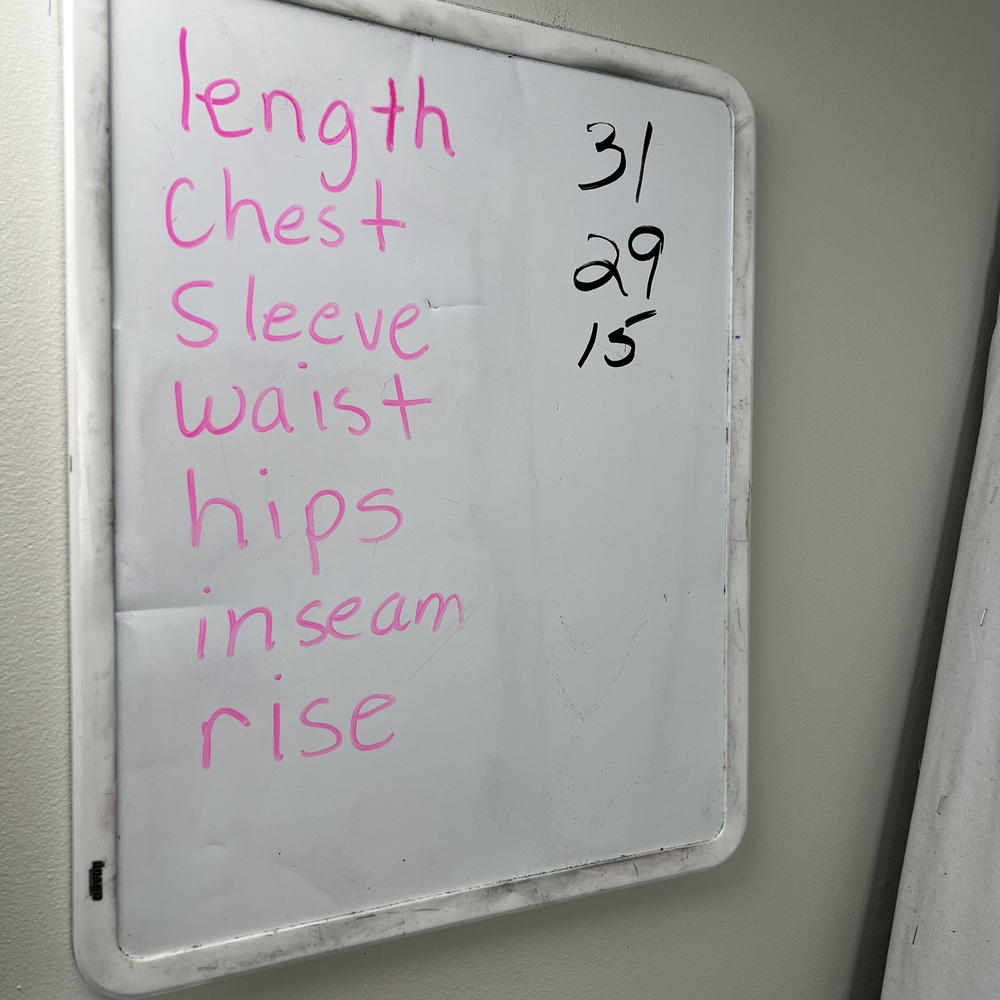 length 31
Chest 29
Sleeve 15
waist
hips
inseam
rise